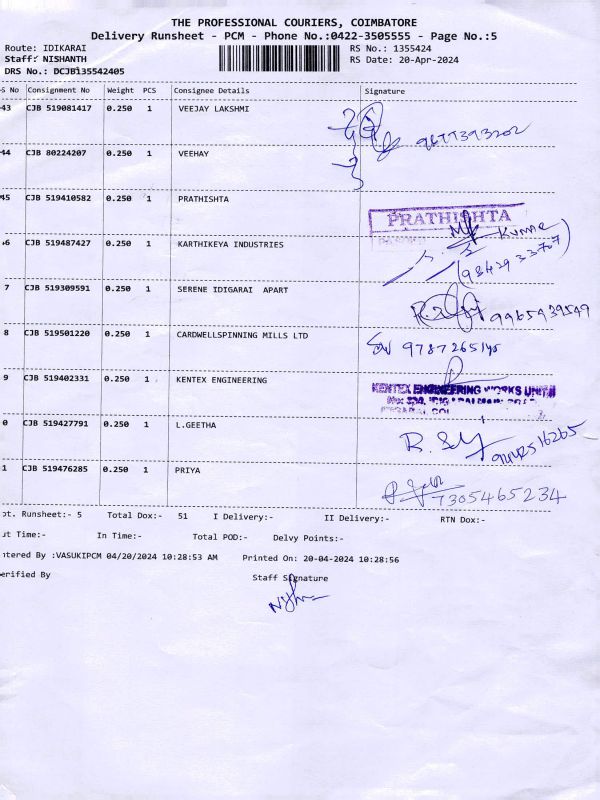 THE PROFESSIONAL COURIERS, COIMBATORE
Delivery Runsheet - PCM - Phone No.:0422-3505555 - Page No.:5
Route: IDIKARAI RS No.: 1355424
Staff: NISHANTH RS Date: 20-Apr-2024
DRS No.: DCJB135542405
S No Consignment No Weight PCS Consignee Details Signature
43 CJB 519081417 0.250 1 VEEJAY LAKSHMI
9677393202
44 CJB 80224207 0.250 1 VEEHAY
45 CJB 519410582 0.250 1 PRATHISHTA
PRATHISHTA
Kumar
46 CJB 519487427 0.250 1 KARTHIKEYA INDUSTRIES
(9842933707)
7 CJB 519309591 0.250 1 SERENE IDIGARAI APART
9965939549
8 CJB 519501220 0.250 1 CARDWELLSPINNING MILLS LTD
9 CJB 519402331 0.250 1 KENTEX ENGINEERING
KENTEX ENGINEERING WORKS UNIT-II
0 CJB 519427791 0.250 1 L.GEETHA
1 CJB 519476285 0.250 1 PRIYA
7305465234
ot. Runsheet:- 5 Total Dox:- 51 I Delivery:- II Delivery:- RTN Dox:-
ut Time:- In Time:- Total POD:- Delvy Points:-
ntered By :VASUKIPCM 04/20/2024 10:28:53 AM Printed On: 20-04-2024 10:28:56
erified By Staff Signature